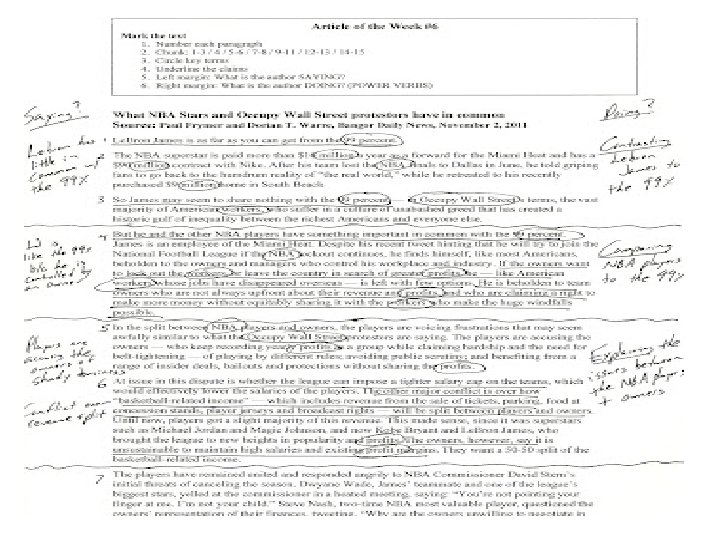 Article of the Week #6
Mark the text
1. Number each paragraph
2. Chunk: 1-3 / 4 / 5-6 / 7-8 / 9-11 / 12-13 / 14-15
3. Circle key terms
4. Underline the claims
5. Left margin: What is the author SAYING?
6. Right margin: What is the author DOING? (POWER VERBS)
Saying?
Doing?
What NBA Stars and Occupy Wall Street protestors have in common
Source: Paul Frymer and Dorian T. Warre, Bangor Daily News, November 2, 2011
1 LeBron James is as far as you can get from the 99 percent.
LeBron has little in common w/ the 99%
Contrasting Lebron James to the 99%
2 The NBA superstar is paid more than $14 million a year as a forward for the Miami Heat and has a
$90 million contract with Nike. After his team lost the NBA finals to Dallas in June, he told griping
fans to go back to the humdrum reality of "the real world," while he retreated to his recently
purchased $9 million home in South Beach.
3 So James may seem to share nothing with the 99 percent — in Occupy Wall Street's terms, the vast
majority of American workers, who suffer in a culture of unabashed greed that has created a
historic gulf of inequality between the richest Americans and everyone else.
4 But he and the other NBA players have something important in common with the 99 percent.
James is an employee of the Miami Heat. Despite his recent tweet hinting that he will try to join the
National Football League if the NBA lockout continues, he finds himself, like most Americans,
beholden to the owners and managers who control his workplace and industry. If the owners want
to lock out the workers or leave the country in search of greater profits, he — like American
workers whose jobs have disappeared overseas — is left with few options. He is beholden to team
owners who are not always upfront about their revenue and profits, and who are claiming a right to
make more money without equitably sharing it with the workers who make the huge windfalls
possible.
LJ is like the 99% b/c he is controlled by an owner
Comparing NBA players to the 99%
5 In the split between NBA players and owners, the players are voicing frustrations that may seem
awfully similar to what the Occupy Wall Street protestors are saying. The players are accusing the
owners — who keep recording yearly profits as a group while claiming hardship and the need for
belt-tightening — of playing by different rules, avoiding public scrutiny, and benefiting from a
range of insider deals, bailouts and protections without sharing the profits.
Players are accusing the owners of shady
Explaining the issues between the NBA players & owners
6 At issue in this dispute is whether the league can impose a tighter salary cap on the teams, which
would effectively lower the salaries of the players. The other major conflict is over how
"basketball-related income" — which includes revenue from the sale of tickets, parking, food at
concession stands, player jerseys and broadcast rights — will be split between players and owners.
Until now, players got a slight majority of this revenue. This made sense, since it was superstars
such as Michael Jordan and Magic Johnson, and now Kobe Bryant and LeBron James, who
brought the league to new heights in popularity and profits. The owners, however, say it is
unsustainable to maintain high salaries and existing profit margins. They want a 50-50 split of the
basketball-related income.
Conflict over revenue split
7 The players have remained united and responded angrily to NBA Commissioner David Stern's
initial threats of canceling the season. Dwyane Wade, James' teammate and one of the league's
biggest stars, yelled at the commissioner in a heated meeting, saying: "You're not pointing your
finger at me. I'm not your child." Steve Nash, two-time NBA most valuable player, questioned the
owners' representation of their finances, tweeting, "Why are the owners unwilling to negotiate in